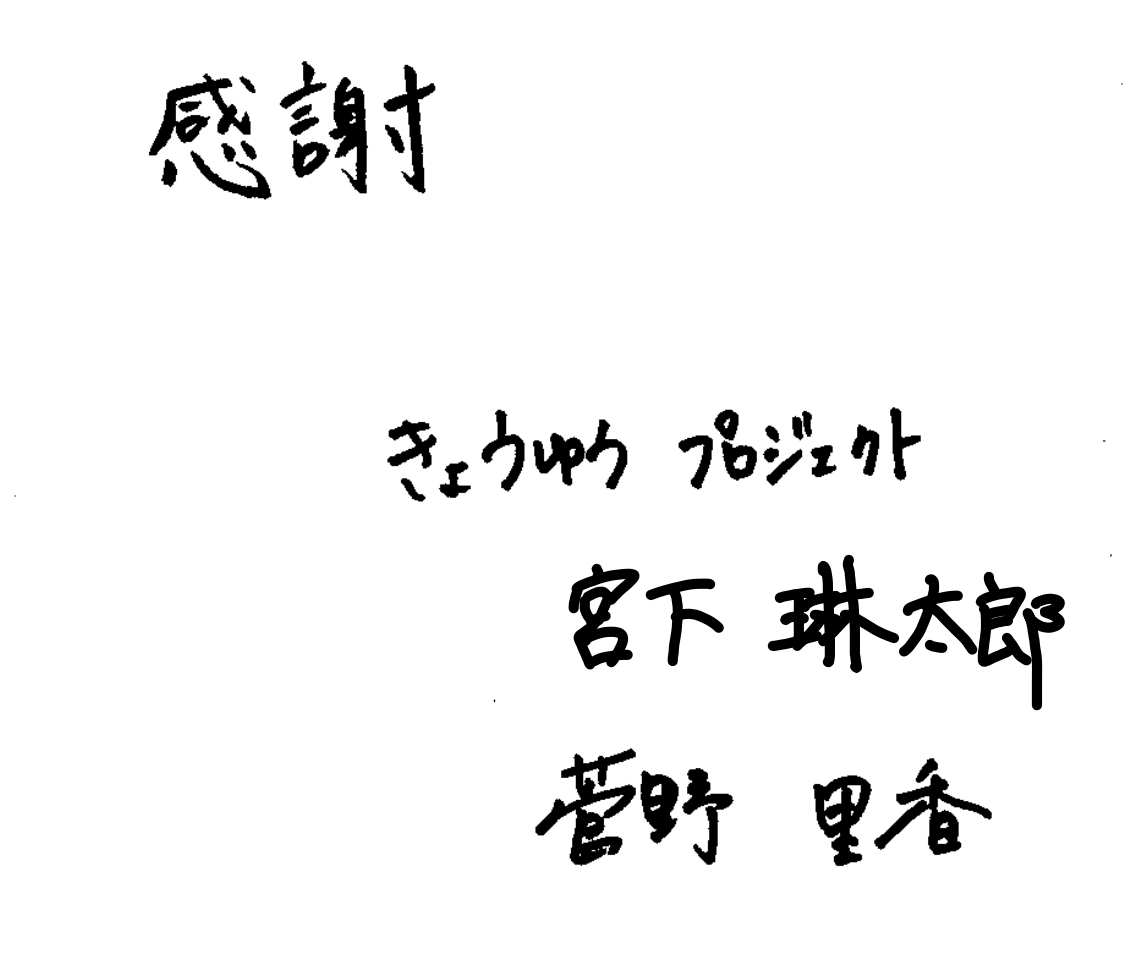 感謝
きょうゆう プロジェクト
宮下 琳太郎
菅野 里香